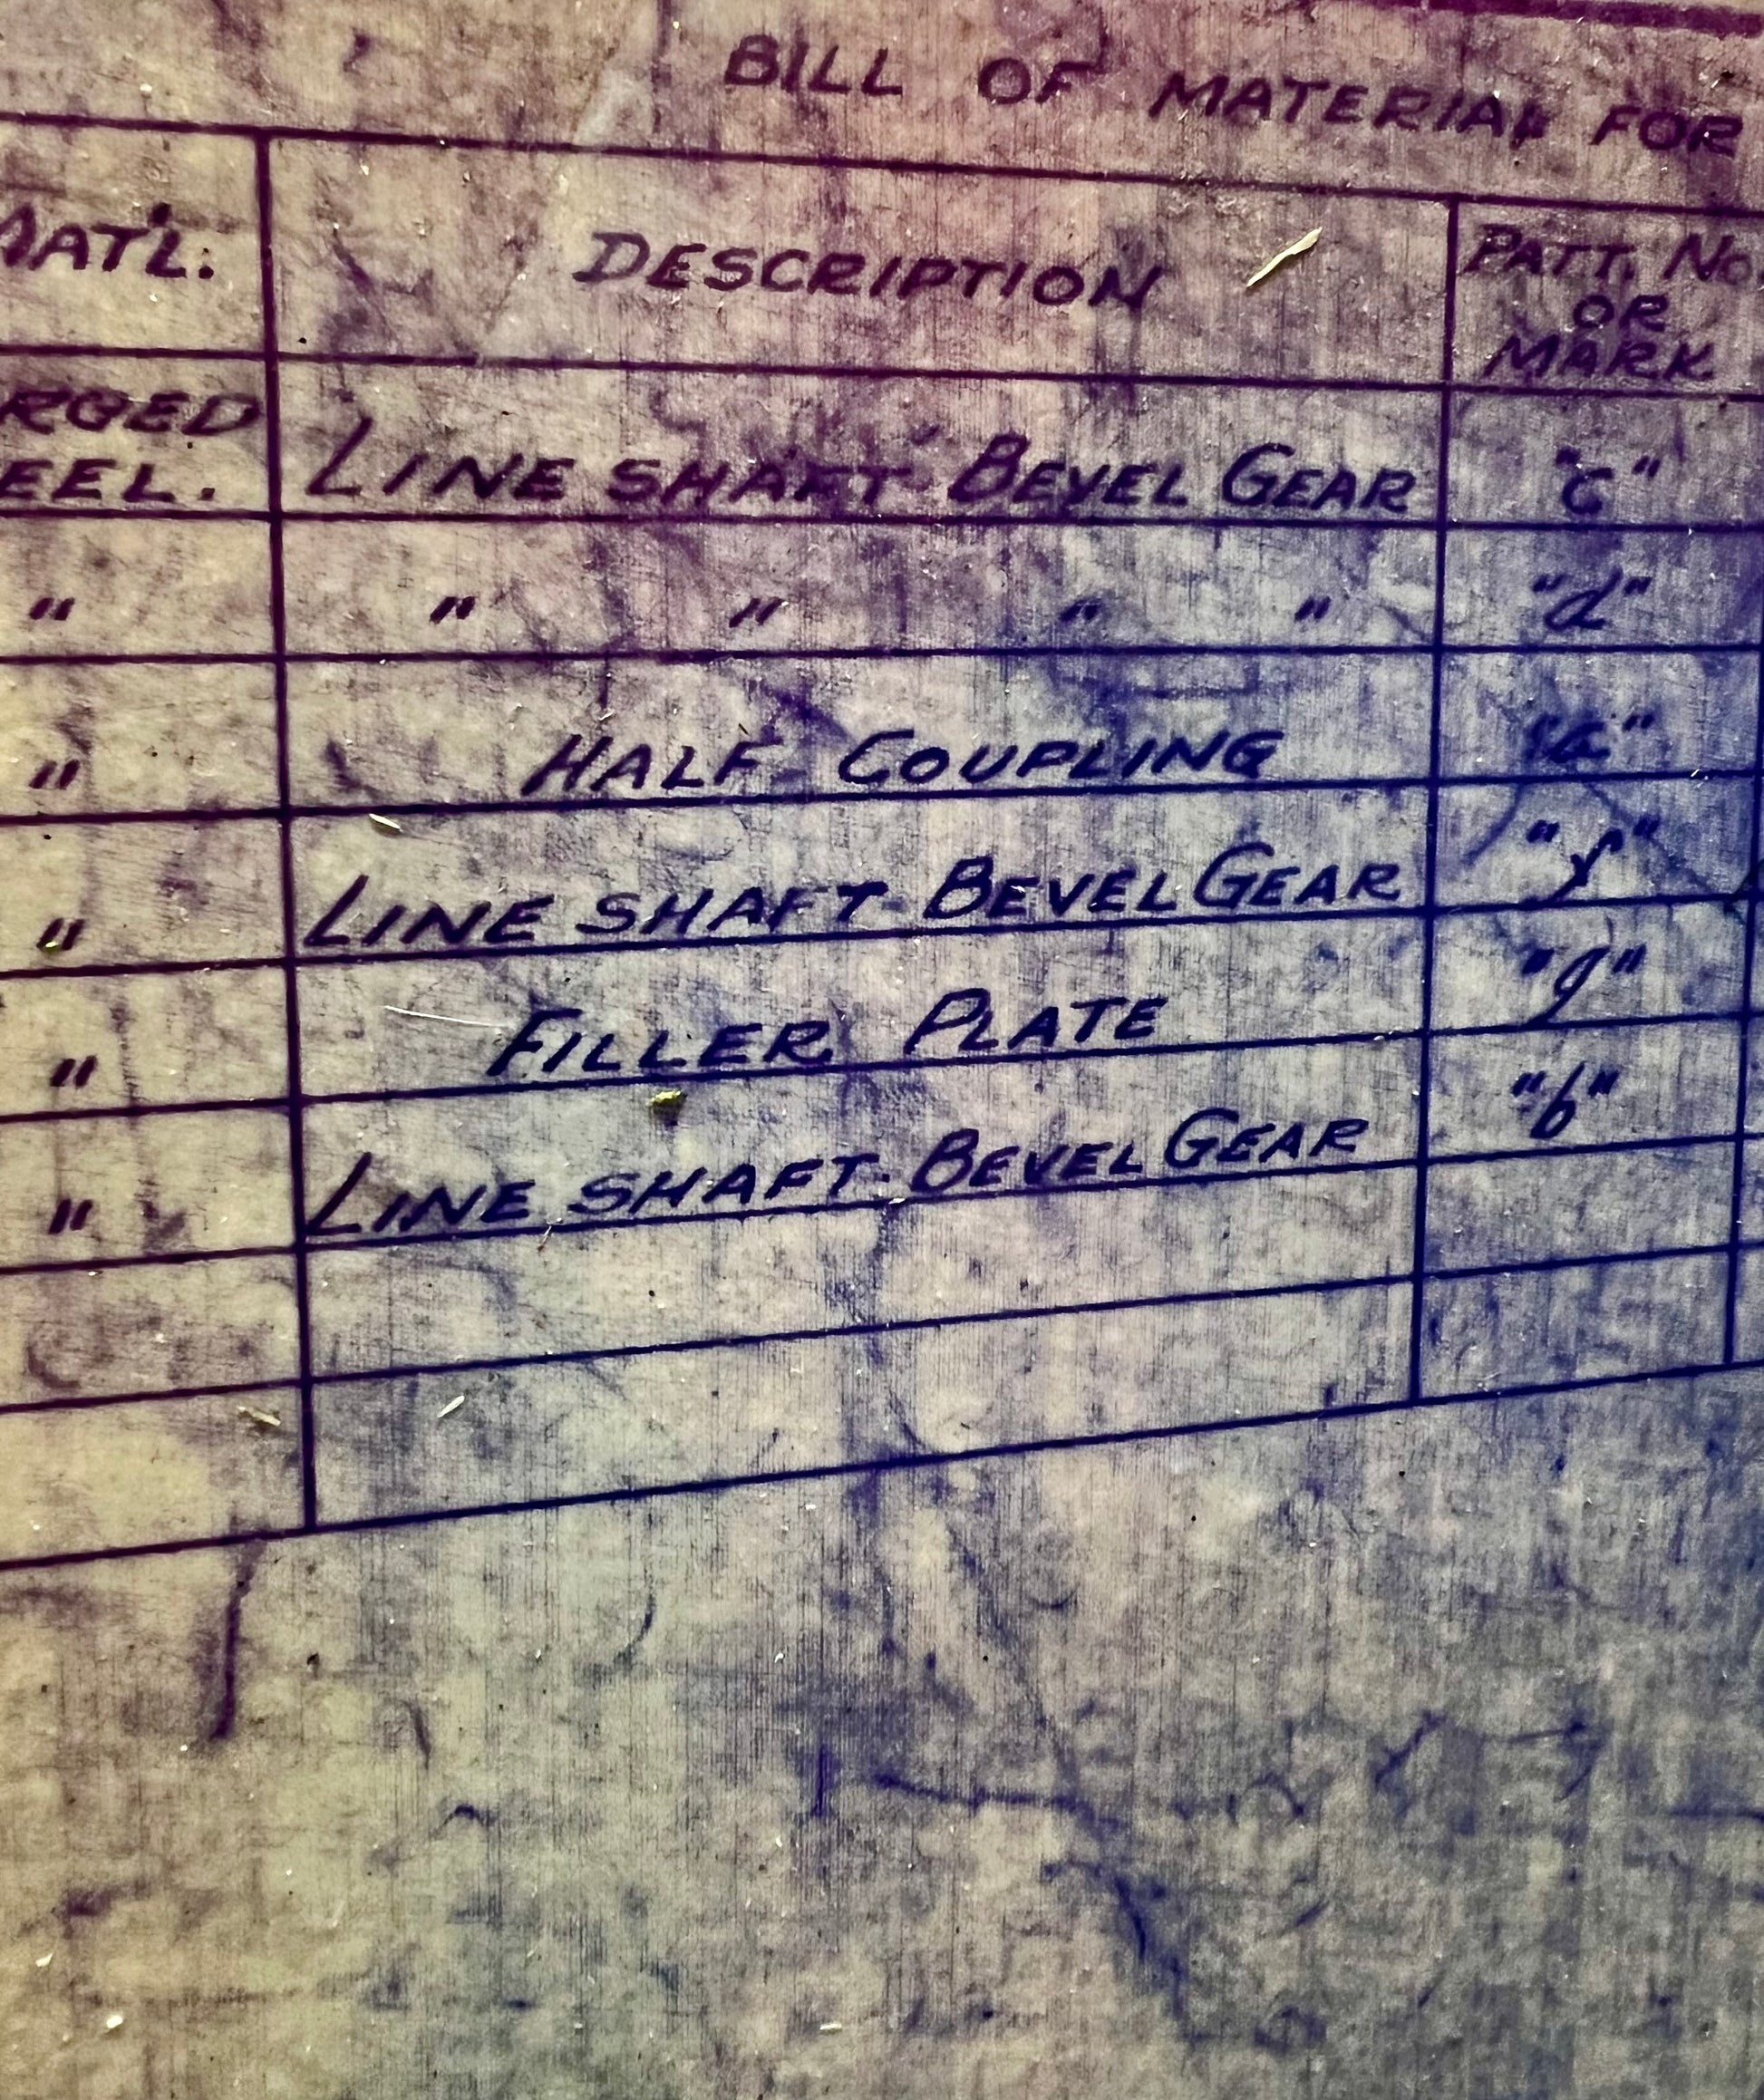 BILL OF MATERIAL FOR
MAT'L. DESCRIPTION PATT. No
OR
MARK
RGED
EEL. LINE SHAFT BEVEL GEAR "c"
" " " " " "d"
" HALF COUPLING
" LINE SHAFT BEVEL GEAR "f"
" FILLER PLATE "g"
" LINE SHAFT BEVEL GEAR "b"